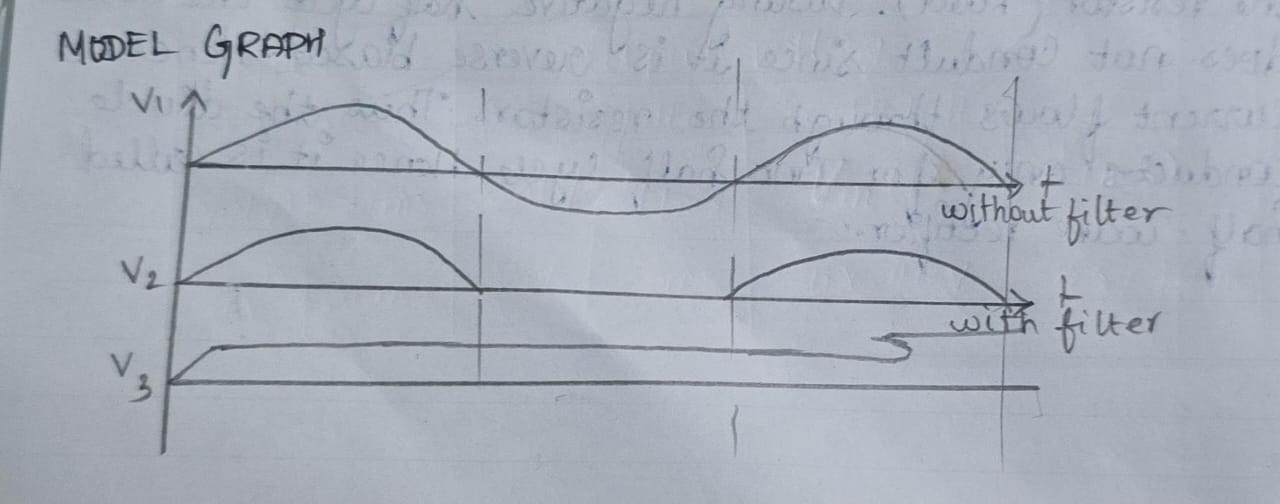 MODEL GRAPH
V1
t
without filter
V2
t
with filter
V3